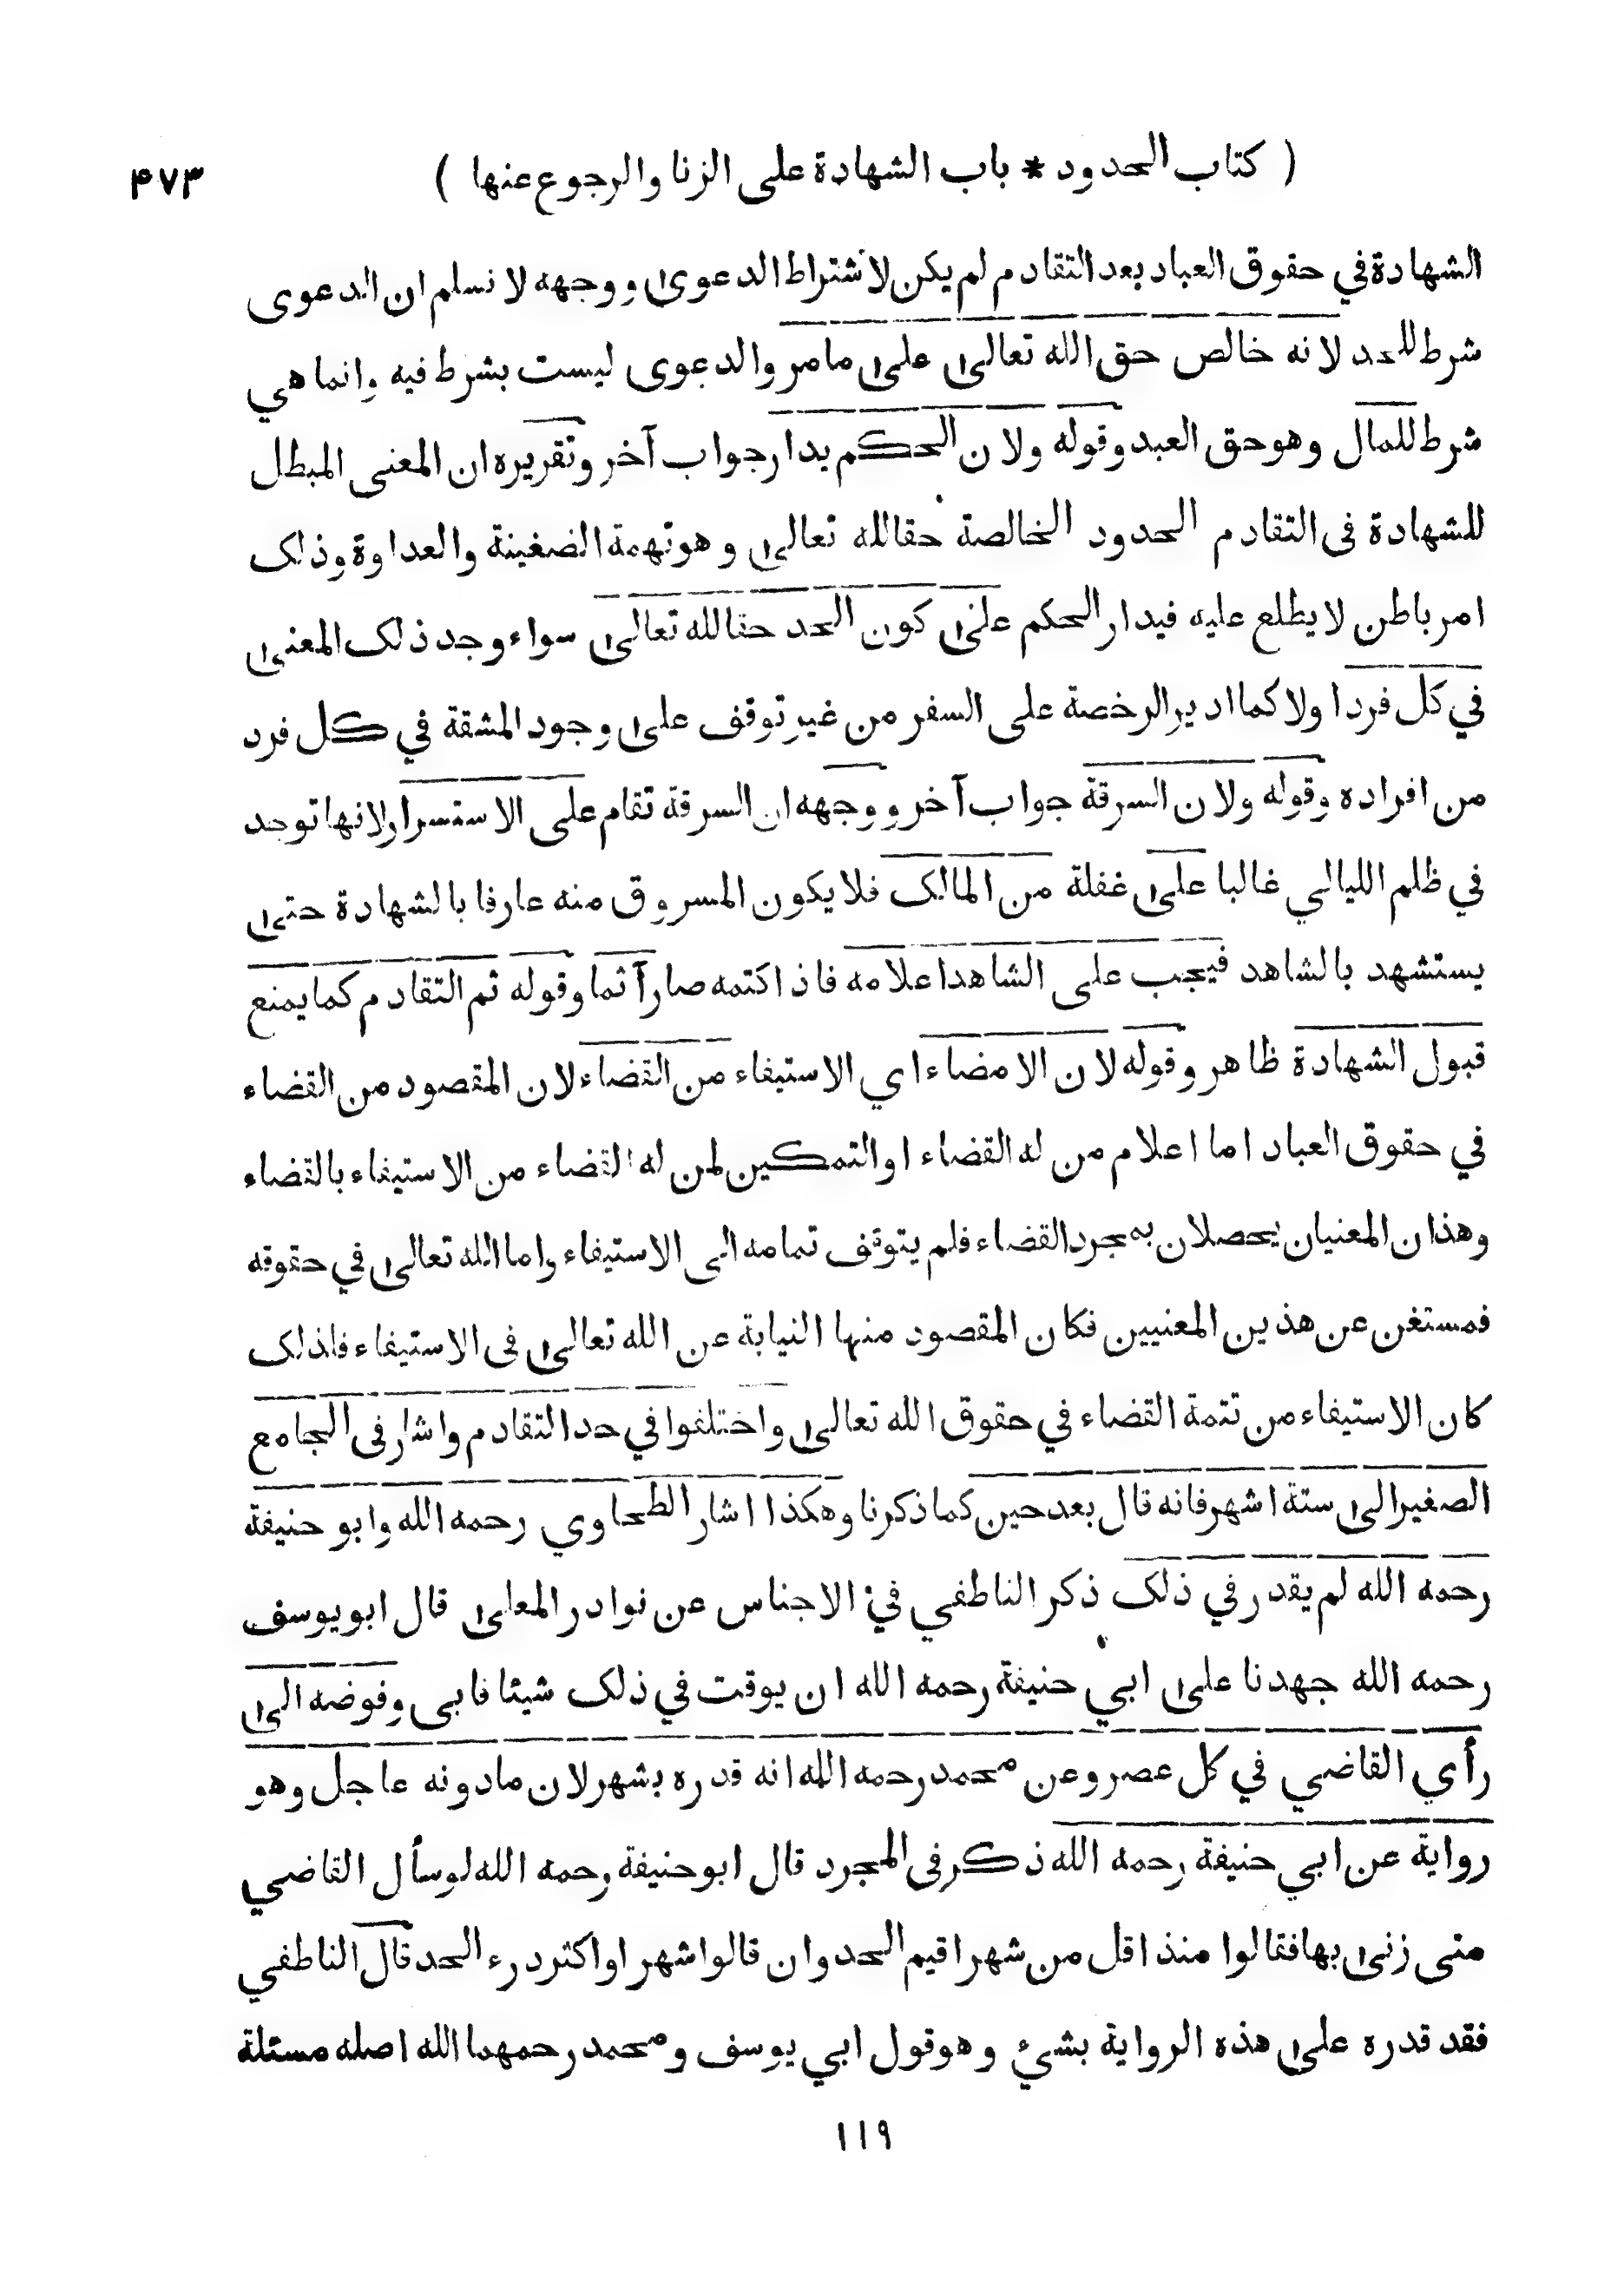 ( كتاب الحدود * باب الشهادة على الزنا والرجوع عنها ) ۴۷۳
الشهادة في حقوق العباد بعد التقادم لم يكن لاشتراط الدعوى ووجهه لا نسلم ان الدعوى
شرط للحد لانه خالص حق الله تعالى على مامر والدعوى ليست بشرط فيه وانما هي
شرط للمال وهو حق العبد وقوله ولان الحكم يدار جواب آخر وتقريره ان المعنى المبطل
للشهادة في التقادم الحدود الخالصة حقا لله تعالى وهو تهمة الضغينة والعداوة وذلك
امر باطن لا يطلع عليه فيدار الحكم على كون الحد حقا لله تعالى سواء وجد ذلك المعنى
في كل فرد اولا كما ادير الرخصة على السفر من غير توقف على وجود المشقة في كل فرد
من افراده وقوله ولان السرقة جواب آخر ووجهه ان السرقة تقام على الاستسرار لانها توجد
في ظلم الليالي غالبا على غفلة من المالك فلا يكون المسروق منه عارفا بالشهادة حتى
يستشهد بالشاهد فيجب على الشاهد اعلامه فاذا كتمه صار آثما وقوله ثم التقادم كما يمنع
قبول الشهادة ظاهر وقوله لان الامضاء اي الاستيفاء من القضاء لان المقصود من القضاء
في حقوق العباد اما اعلام من له القضاء او التمكين لمن له القضاء من الاستيفاء بالقضاء
وهذان المعنيان يحصلان بمجرد القضاء فلم يتوقف تمامه الى الاستيفاء واما الله تعالى في حقوقه
فمستغن عن هذين المعنيين فكان المقصود منها النيابة عن الله تعالى في الاستيفاء فلذلك
كان الاستيفاء من تتمة القضاء في حقوق الله تعالى واختلفوا في حد التقادم واشار في الجامع
الصغير الى ستة اشهر فانه قال بعد حين كما ذكرنا وهكذا اشار الطحاوي رحمه الله وابو حنيفة
رحمه الله لم يقدر في ذلك ذكر الناطفي في الاجناس عن نوادر المعلى قال ابو يوسف
رحمه الله جهدنا على ابي حنيفة رحمه الله ان يوقت في ذلك شيئا فابى وفوضه الى
رأي القاضي في كل عصر وعن محمد رحمه الله انه قدره بشهر لان مادونه عاجل وهو
رواية عن ابي حنيفة رحمه الله ذكر في المجرد قال ابو حنيفة رحمه الله لو سأل القاضي
متى زنى بها فقالوا منذ اقل من شهر اقيم الحد وان قالوا شهر او اكثر درء الحد قال الناطفي
فقد قدره على هذه الرواية بشئ وهو قول ابي يوسف ومحمد رحمهما الله اصله مسئلة
١١٩